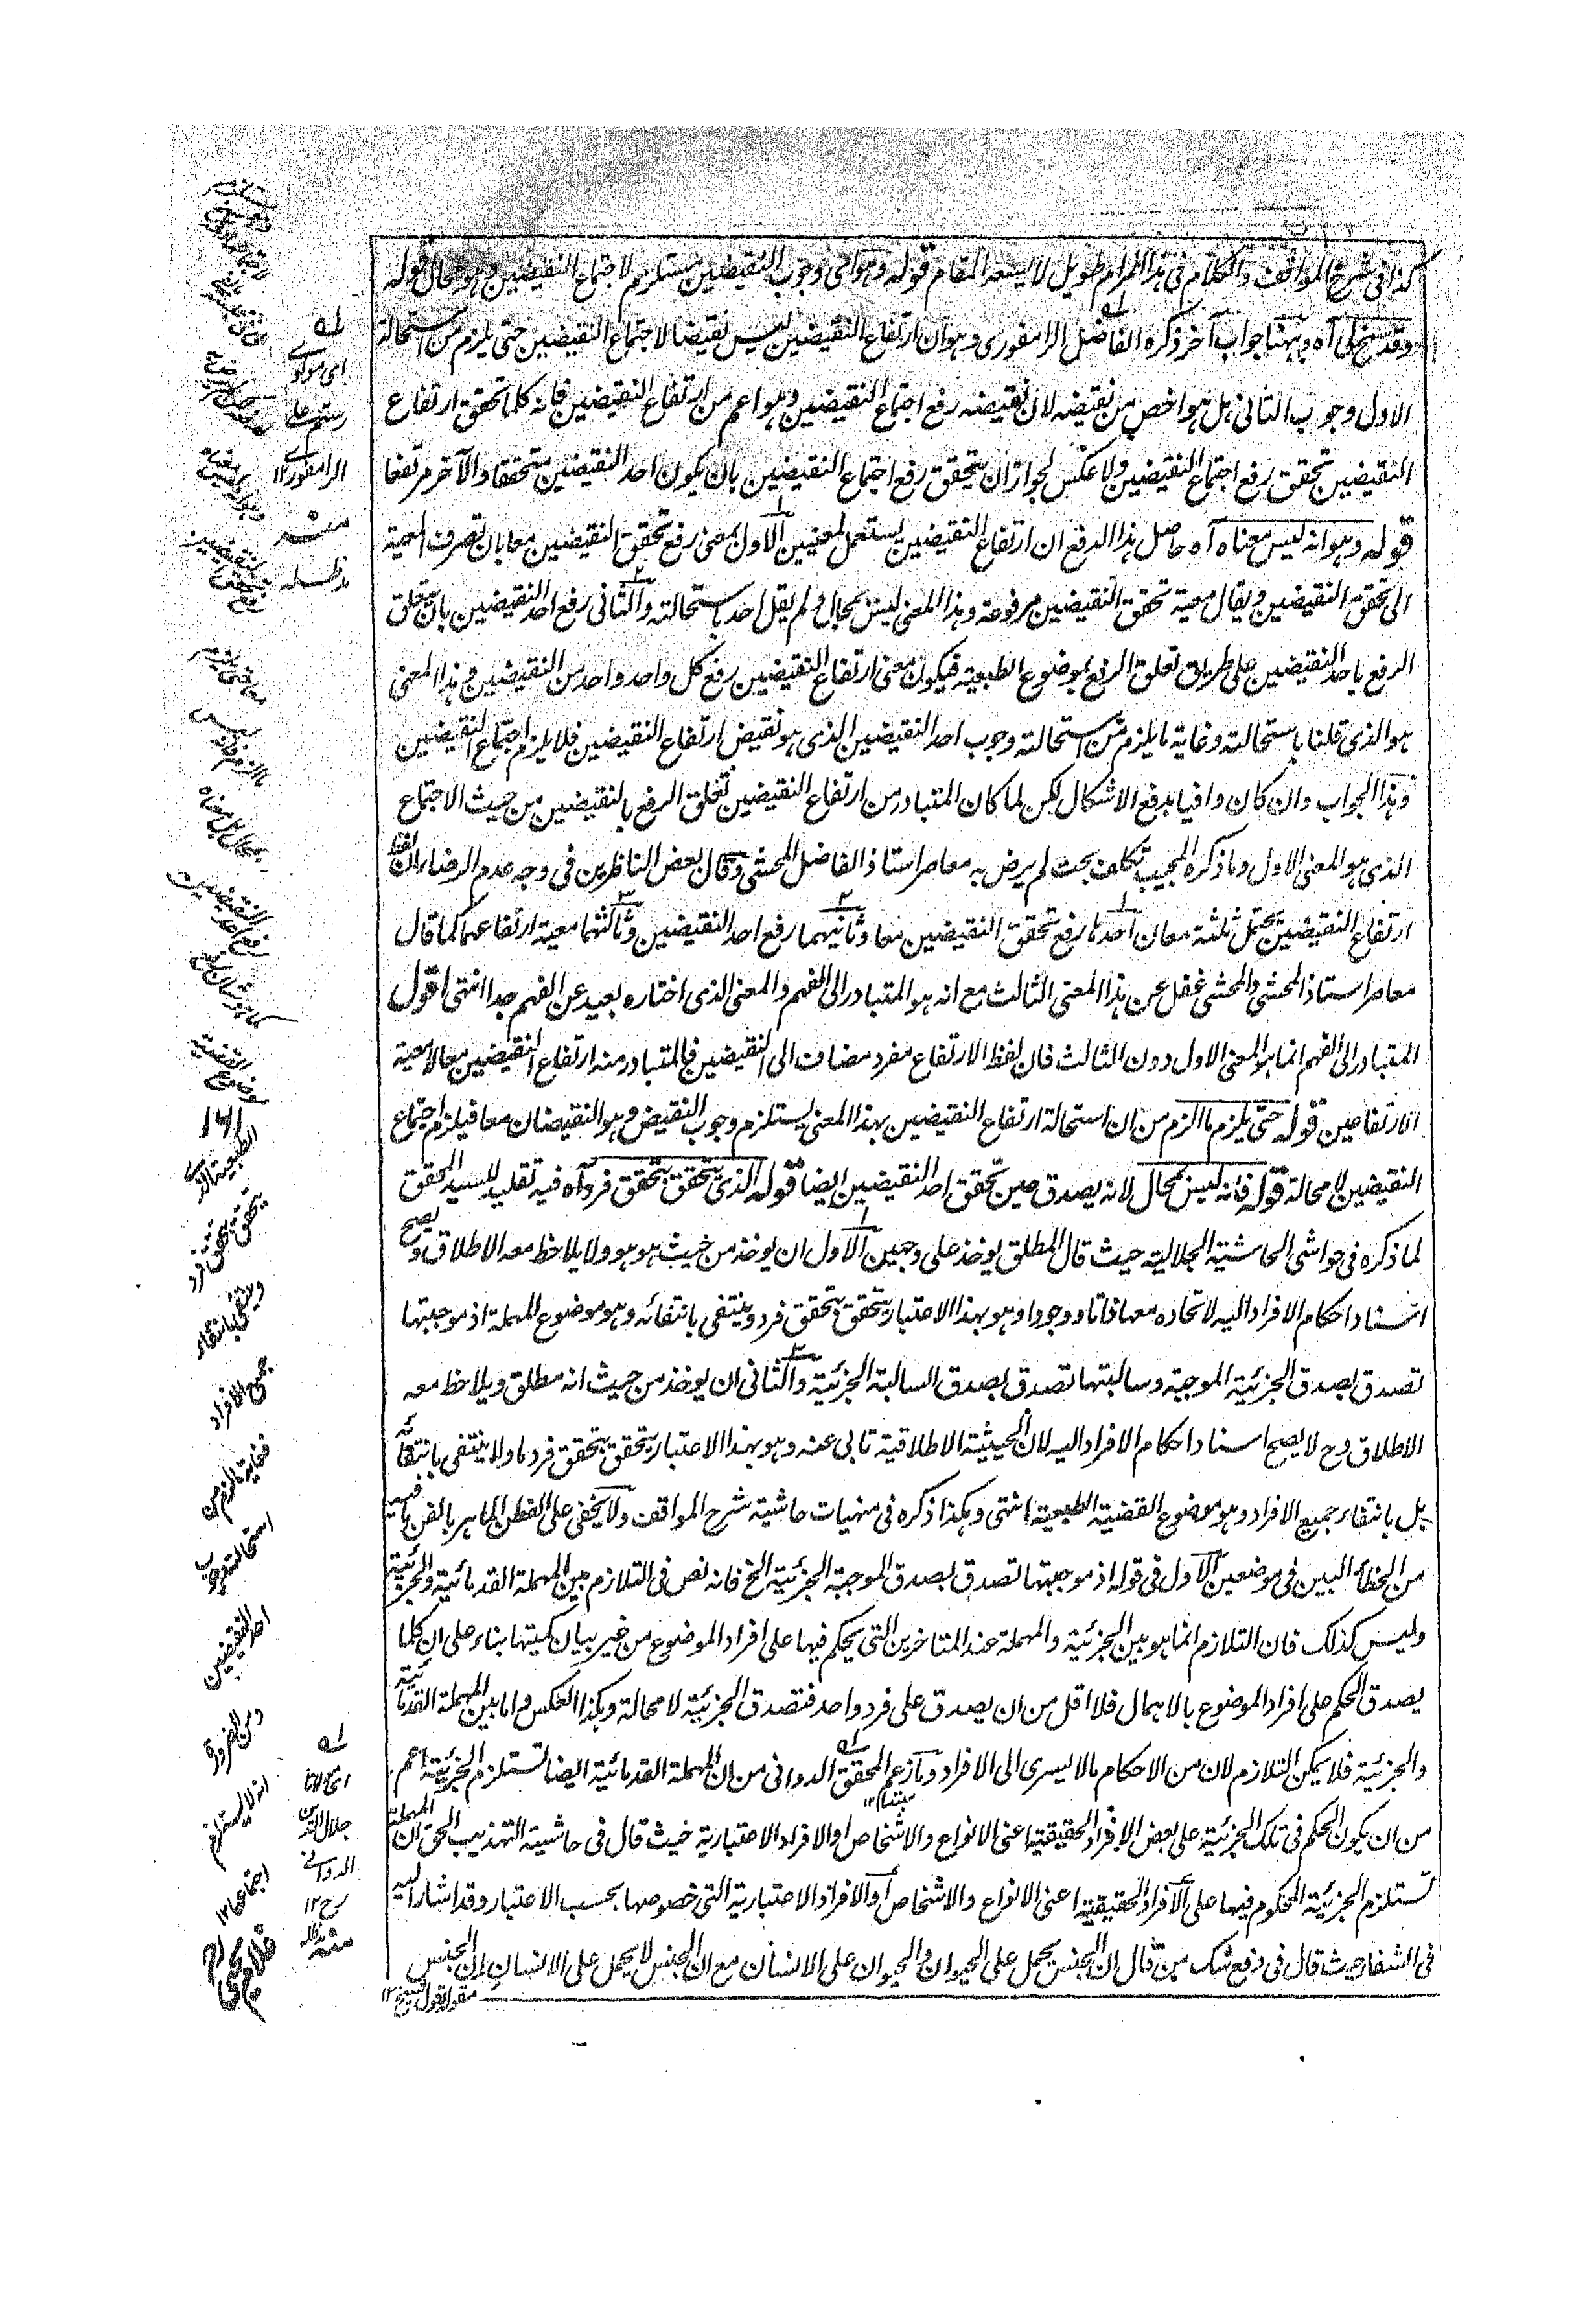 كذا فى شرح المواقف والكلام فى هذا المرام طويل لا يسعه المقام قوله وهو اى وجوب النقيضين مستلزم لاجتماع النقيضين وهو محال قوله
وقد سنح لى آه وههنا جواب آخر ذكره الفاضل الرامفورى وهو ان ارتفاع النقيضين ليس نقيضا لاجتماع النقيضين حتى يلزم من استحالة
الاول وجوب الثانى بل هو اخص من نقيضه لان نقيضه رفع اجتماع النقيضين وهو اعم من ارتفاع النقيضين فانه كلما تحقق ارتفاع
النقيضين تحقق رفع اجتماع النقيضين ولا عكس لجواز ان يتحقق رفع اجتماع النقيضين بان يكون احد النقيضين متحققا والآخر مرتفعا
قوله وهو انه ليس معناه آه حاصل هذا الدفع ان ارتفاع النقيضين يستعمل لمعنيين الاول بمعنى رفع تحقق النقيضين معا بان تصرف المعية
الى تحقق النقيضين ويقال معية تحقق النقيضين مرفوعة وهذا المعنى ليس بمحال ولم يقل احد باستحالته والثانى رفع احد النقيضين بان يتعلق
الرفع باحد النقيضين على طريق تعلق الرفع بموضوع الطبعية فيكون معنى ارتفاع النقيضين رفع كل واحد واحد من النقيضين وهذا المعنى
هو الذى قلنا باستحالته وغاية ما يلزم من استحالته وجوب احد النقيضين الذى هو نقيض ارتفاع النقيضين فلا يلزم اجتماع النقيضين
وهذا الجواب وان كان وافيا بدفع الاشكال لكن لما كان المتبادر من ارتفاع النقيضين تعلق الرفع بالنقيضين من حيث الاجتماع
الذى هو المعنى الاول وما ذكره المجيب تكلف بحت لم يرض به معاصر استاذ الفاضل المحشى وقال بعض الناظرين فى وجه عدم الرضاء ان لفظ
ارتفاع النقيضين يحتمل ثلثة معان احدها رفع تحقق النقيضين معا وثانيهما رفع احد النقيضين وثالثهما معية ارتفاعهما كما قال
معاصر استاذ المحشى والمحشى غفل عن هذا المعنى الثالث مع انه هو المتبادر الى الفهم والمعنى الذى اختاره بعيد عن الفهم جدا انتهى اقول
المتبادر الى الفهم انما هو المعنى الاول دون الثالث فان لفظ الارتفاع مفرد مضاف الى النقيضين فالمتبادر منه ارتفاع النقيضين معا لا معية
الارتفاعين قوله حتى يلزم ما الزم من ان استحالة ارتفاع النقيضين بهذا المعنى يستلزم وجوب النقيض وهو النقيضان معا فيلزم اجتماع
النقيضين لا محالة قوله فانه ليس بمحال لانه يصدق حين تحقق احد النقيضين ايضا قوله الذى يتحقق بتحقق فرد آه فيه تقليد للسيد المحقق
لما ذكره فى حواشى الحاشية الجلالية حيث قال المطلق يوخذ على وجهين الاول ان يوخذ من حيث هو هو ولا يلاحظ معه الاطلاق و يصح
اسناد احكام الافراد اليه لاتحاده معها ذاتا ووجودا وهو بهذا الاعتبار يتحقق بتحقق فرد وينتفى بانتفائه وهو موضوع المهملة اذ موجبتها
تصدق بصدق الجزئية الموجبة وسالبتها تصدق بصدق السالبة الجزئية والثانى ان يوخذ من حيث انه مطلق ويلاحظ معه
الاطلاق وح لا يصح اسناد احكام الافراد اليه لان الحيثية الاطلاقية تابى عنه وهو بهذا الاعتبار يتحقق بتحقق فرد ما ولا ينتفى بانتفائه
بل بانتفاء جميع الافراد وهو موضوع القضية الطبعية انتهى وهكذا ذكره فى منهيات حاشية شرح المواقف ولا يخفى على الفطن الماهر بالفن ما فيه
من الخطأ البين فى موضعين الاول فى قوله اذ موجبتها تصدق بصدق الموجبة الجزئية الخ فانه نص فى التلازم بين المهملة القدمائية والجزئية
وليس كذلك فان التلازم انما هو بين الجزئية والمهملة عند المتاخرين التى يحكم فيها على افراد الموضوع من غير بيان كميتها بناء على ان كلما
يصدق الحكم على افراد الموضوع بالاهمال فلا اقل من ان يصدق على فرد واحد فتصدق الجزئية لا محالة وبكذا العكس واما بين المهملة القدمائية
والجزئية فلا يمكن التلازم لان من الاحكام ما لا يسرى الى الافراد وما زعم المحقق الدوانى من ان المهملة القدمائية ايضا تستلزم الجزئية اعم
من ان يكون الحكم فى تلك الجزئية على بعض الافراد الحقيقية اعنى الانواع والاشخاص او الافراد الاعتبارية حيث قال فى حاشية التهذيب الحق ان المهملة
تستلزم الجزئية المحكوم فيها على الافراد الحقيقية اعنى الانواع والاشخاص او الافراد الاعتبارية التى خصوصها بحسب الاعتبار وقد اشار اليه
فى الشفاء حيث قال فى دفع شك من قال ان الجنس يحمل على الحيوان والحيوان على الانسان مع ان الجنس لا يحمل على الانسان ان الجنس
اى مولوى
رستم على
الرامفورى ١٢
منه
مد ظله
رفع احد النقيضين
موضوع القضية
١٦١
الطبعية الذى
يتحقق بتحقق فرد
وينتفى بانتفاء
جميع الافراد
فغاية ما لزم من
استحالته وجوب
احد النقيضين
ومن الضرورة
انه لا يستلزم
اجتماعهما ١٢
اى مولانا
جلال الدين
الدوانى
رح ١٢
منه مد ظله
مبتدأ ١٢